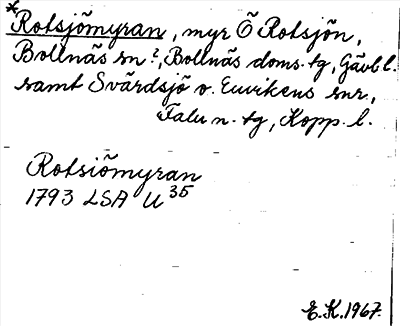 *Rotsjömyran, myr Ö Rotsjön,
Bollnäs sn?, Bollnäs doms. tg, Gävl l.
samt Svärdsjö o. Envikens snr,
Falu n. tg, Kopp. l.
Rotsiömyran
1793 LSA U 35
E.K. 1967.